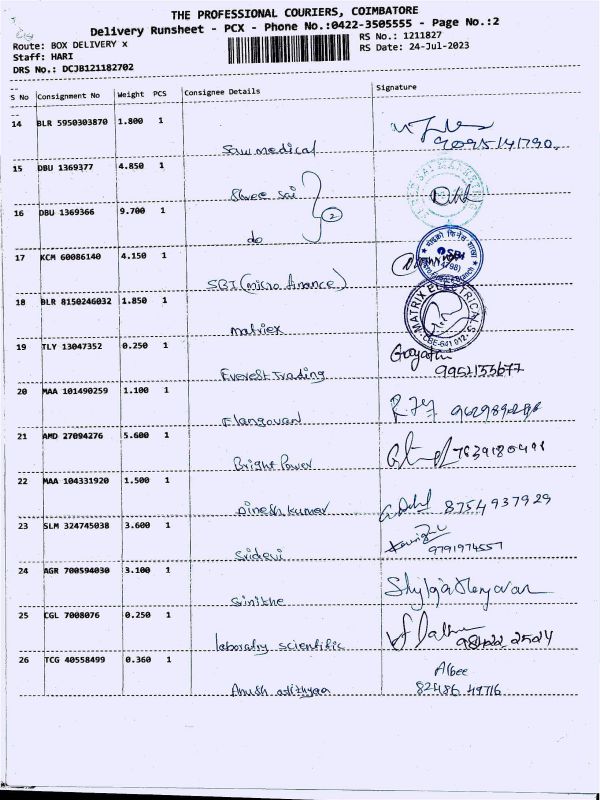 THE PROFESSIONAL COURIERS, COIMBATORE
Delivery Runsheet - PCX - Phone No.:0422-3505555 - Page No.:2
Route: BOX DELIVERY x
RS No.: 1211827
Staff: HARI
RS Date: 24-Jul-2023
DRS No.: DCJB121182702
S No Consignment No Weight PCS Consignee Details Signature
14 BLR 5950303870 1.800 1
Saw medical 9095141790
15 DBU 1369377 4.850 1
Shree Sai
16 DBU 1369366 9.700 1
do 2
17 KCM 60086140 4.150 1
SBI (micro finance) SBI
18 BLR 8150246032 1.850 1
matriex MATRIX ELECTRICALS CBE-641 012
19 TLY 13047352 0.250 1
Everest Trading Gayathri
20 MAA 101490259 1.100 1
Elangovan
21 AMD 27094276 5.600 1
Bright Power
22 MAA 104331920 1.500 1
Dinesh kumar 8754937929
23 SLM 324745038 3.600 1
Sridevi 9791974557
24 AGR 700594030 3.100 1
Sinithe
25 CGL 7008076 0.250 1
laboratry scientific 98422 2524
26 TCG 40558499 0.360 1
Albee
Anush adithyaa 82486 49716